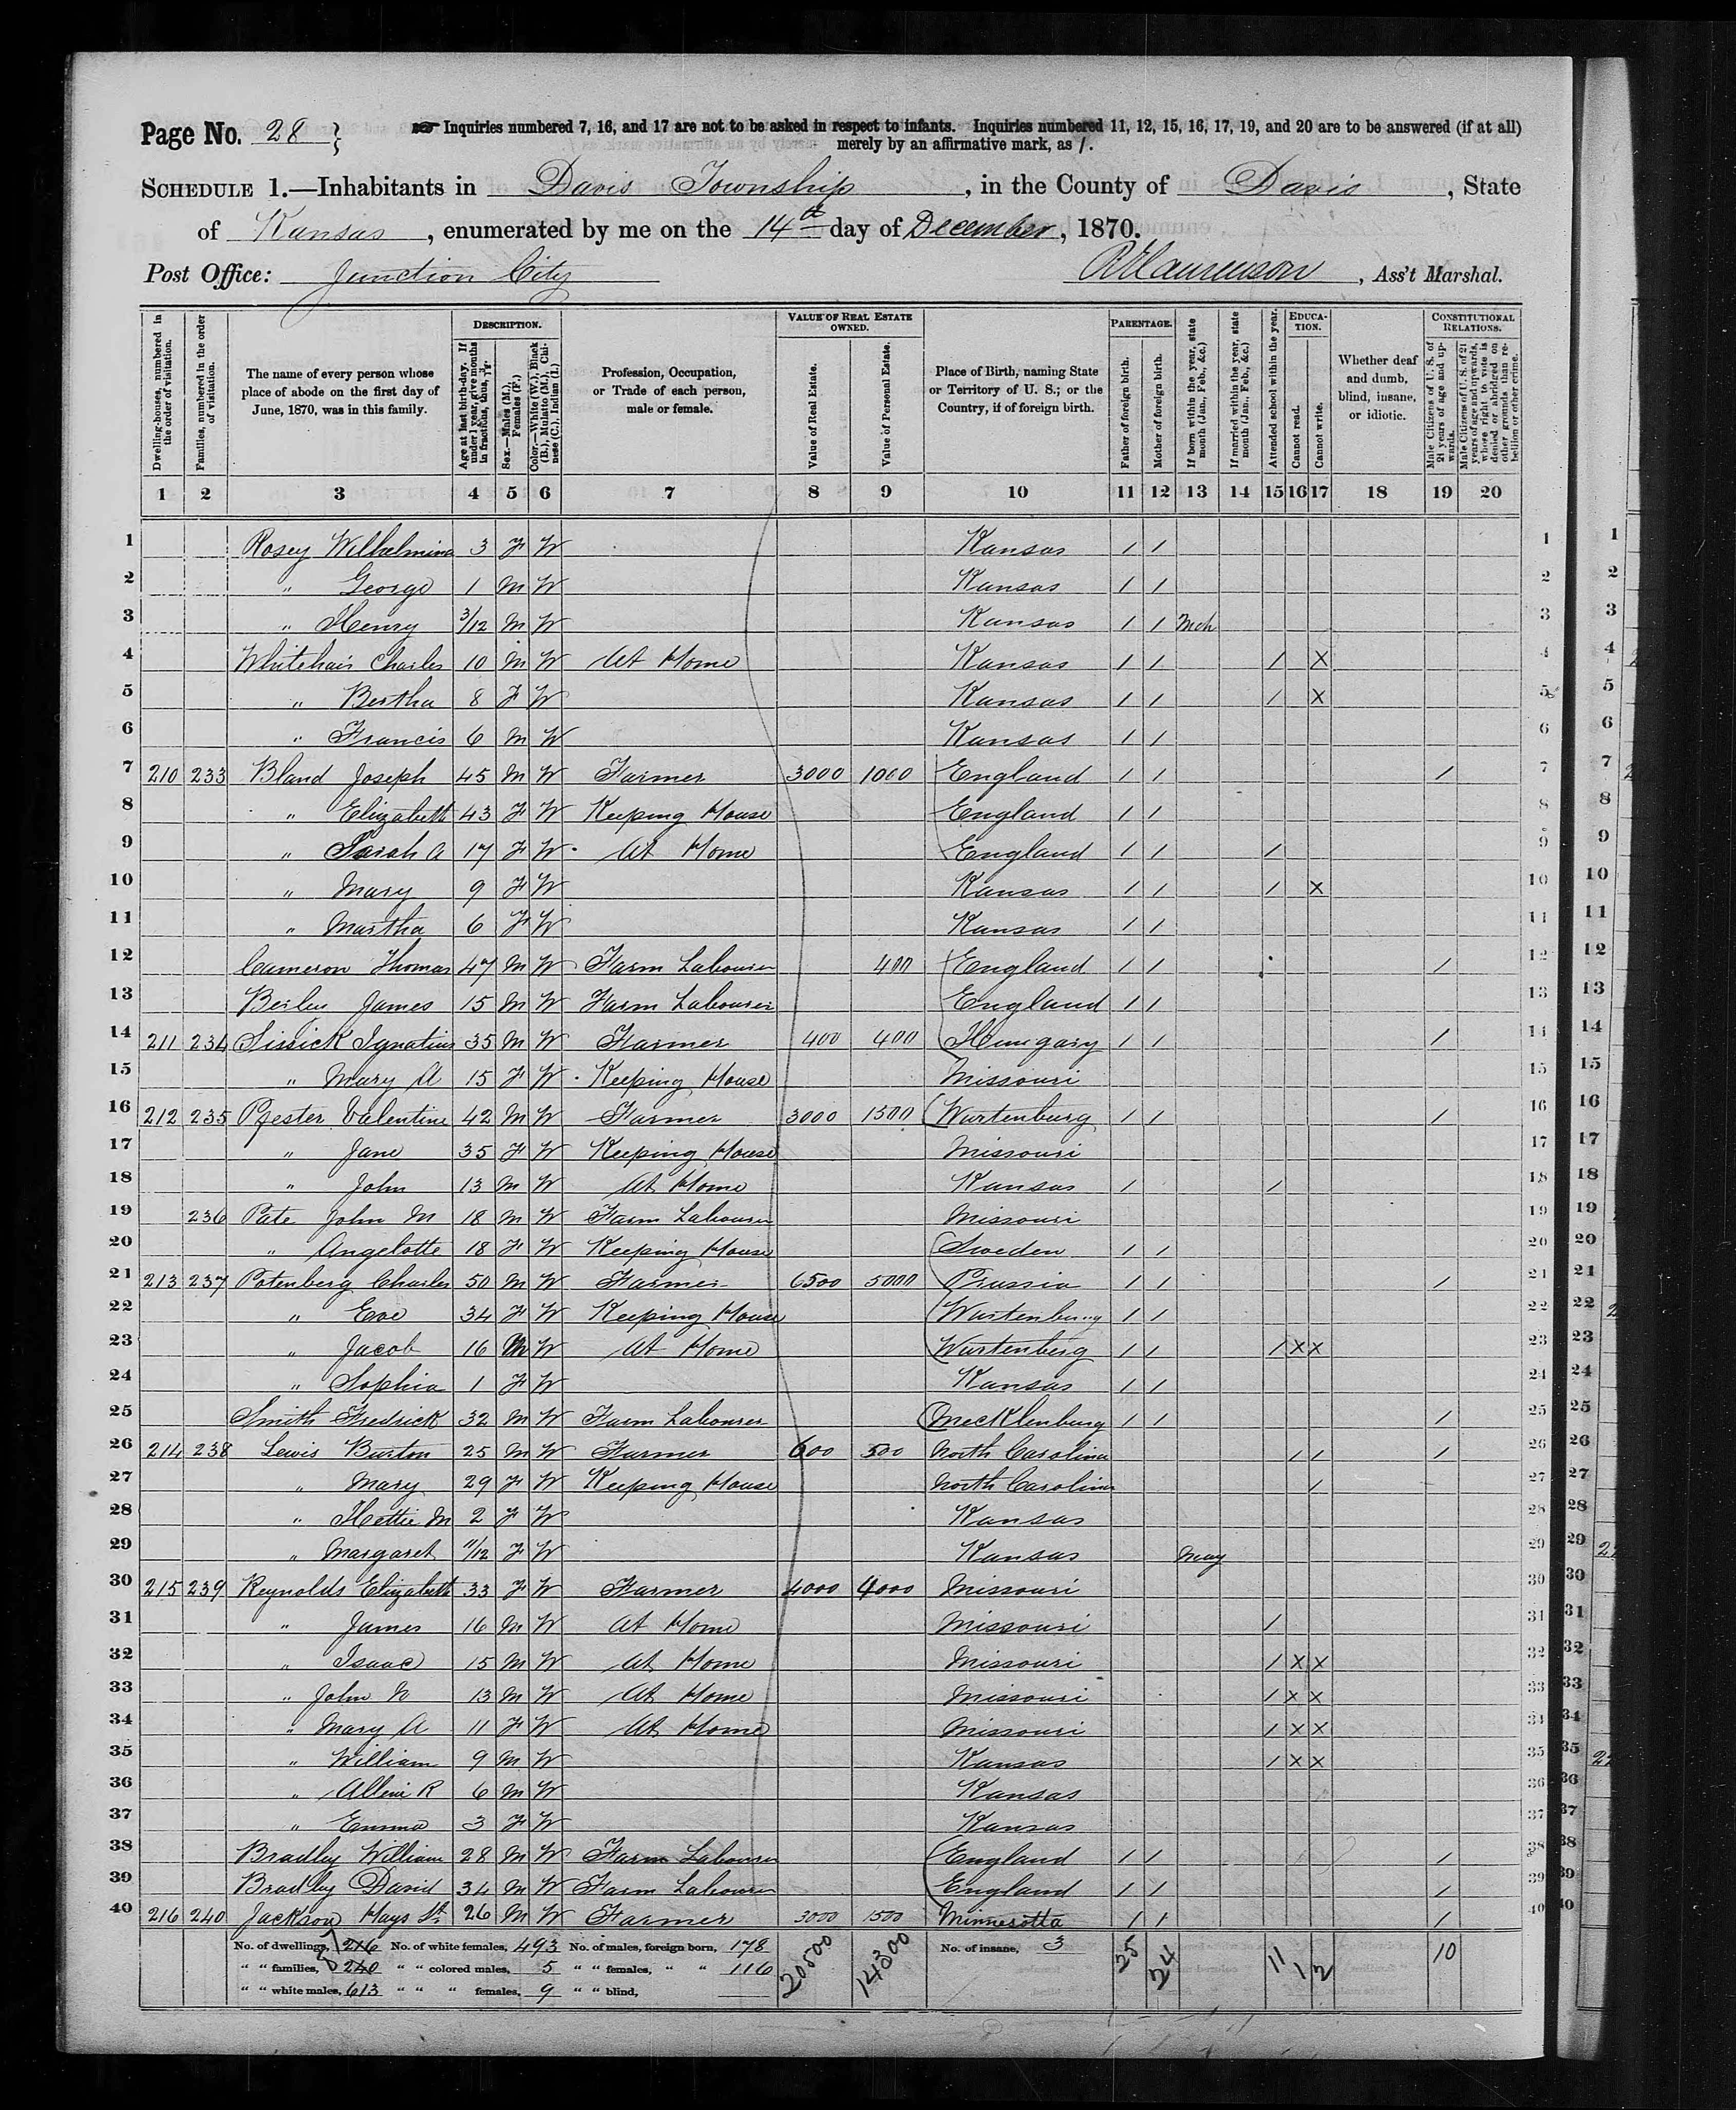 Page No. 28 } Inquiries numbered 7, 16, and 17 are not to be asked in respect to infants. Inquiries numbered 11, 12, 15, 16, 17, 19, and 20 are to be answered (if at all)
merely by an affirmative mark, as /.
SCHEDULE 1.—Inhabitants in Davis Township, in the County of Davis, State
of Kansas, enumerated by me on the 14th day of December, 1870.
Post Office: Junction City , Ass't Marshal.
Dwelling-houses, numbered in the order of visitation.
Families, numbered in the order of visitation.
The name of every person whose place of abode on the first day of June, 1870, was in this family.
DESCRIPTION.
Age at last birth-day. If under 1 year, give months in fractions, thus,
Sex.—Males (M.), Females (F.)
Color.—White (W.), Black (B.), Mulatto (M.), Chinese (C.), Indian (I.)
Profession, Occupation, or Trade of each person, male or female.
VALUE OF REAL ESTATE OWNED.
Value of Real Estate.
Value of Personal Estate.
Place of Birth, naming State or Territory of U. S.; or the Country, if of foreign birth.
PARENTAGE.
Father of foreign birth.
Mother of foreign birth.
If born within the year, state month (Jan., Feb., &c.)
If married within the year, state month (Jan., Feb., &c.)
Attended school within the year.
EDUCATION.
Cannot read.
Cannot write.
Whether deaf and dumb, blind, insane, or idiotic.
CONSTITUTIONAL RELATIONS.
Male Citizens of U. S. of 21 years of age and upwards.
Male Citizens of U. S. of 21 years of age and upwards, whose right to vote is denied or abridged on other grounds than rebellion or other crime.
1 2 3 4 5 6 7 8 9 10 11 12 13 14 15 16 17 18 19 20
1 Rosey Wilhelmina 3 F W Kansas / / 1
2 " George 1 M W Kansas / / 2
3 " Henry 3/12 M W Kansas / / Mch 3
4 Whitehair Charles 10 M W At Home Kansas / / / X 4
5 " Bertha 8 F W Kansas / / / X 5
6 " Francis 6 M W Kansas / / 6
7 210 233 Bland Joseph 45 M W Farmer 3000 1000 England / / / 7
8 " Elizabeth 43 F W Keeping House England / / 8
9 " Sarah A 17 F W At Home England / / / 9
10 " Mary 9 F W Kansas / / / X 10
11 " Martha 6 F W Kansas / / 11
12 Cameron Thomas 47 M W Farm Labourer 400 England / / / 12
13 James 15 M W Farm Labourer England / / 13
14 211 234 Sissick Ignatius 35 M W Farmer 400 400 Hungary / / / 14
15 " Mary A 15 F W Keeping House Missouri 15
16 212 235 Valentine 42 M W Farmer 3000 1500 Wurtenburg / / / 16
17 " Jane 35 F W Keeping House Missouri 17
18 " John 13 M W At Home Kansas / / 18
19 236 Pate John M 18 M W Farm Labourer Missouri 19
20 " Angelotte 18 F W Keeping House Sweden / / 20
21 213 237 Potenberg Charles 50 M W Farmer 6500 5000 Prussia / / / 21
22 " Eve 34 F W Keeping House Wurtenburg / / 22
23 " Jacob 16 M W At Home Wurtenberg / / / X X 23
24 " Sophia 1 F W Kansas / / 24
25 Smith Fredrick 32 M W Farm Labourer Mecklenburg / / / 25
26 214 238 Lewis Burton 25 M W Farmer 600 500 North Carolina / / / 26
27 " Mary 29 F W Keeping House North Carolina / 27
28 " Hettie M 2 F W Kansas 28
29 " Margaret 11/12 F W Kansas May 29
30 215 239 Reynolds Elizabeth 33 F W Farmer 4000 4000 Missouri 30
31 " James 16 M W At Home Missouri / 31
32 " Isaac 15 M W At Home Missouri / X X 32
33 " John N 13 M W At Home Missouri / X X 33
34 " Mary A 11 F W At Home Missouri / X X 34
35 " William 9 M W Kansas / X X 35
36 " R 6 M W Kansas 36
37 " Emma 3 F W Kansas 37
38 Bradley William 28 M W Farm Labourer England / / / 38
39 Bradley David 34 M W Farm Labourer England / / / 39
40 216 240 Jackson Hays 26 M W Farmer 3000 1500 Minnesotta / / / 40
No. of dwellings, 216 No. of white females, 493 No. of males, foreign born, 178 20500 14300 No. of insane, 3 25 24 11 1 2 10
" " families, 240 " " colored males, 5 " " females, " " 116
" " white males, 613 " " " females, 9 " " blind,